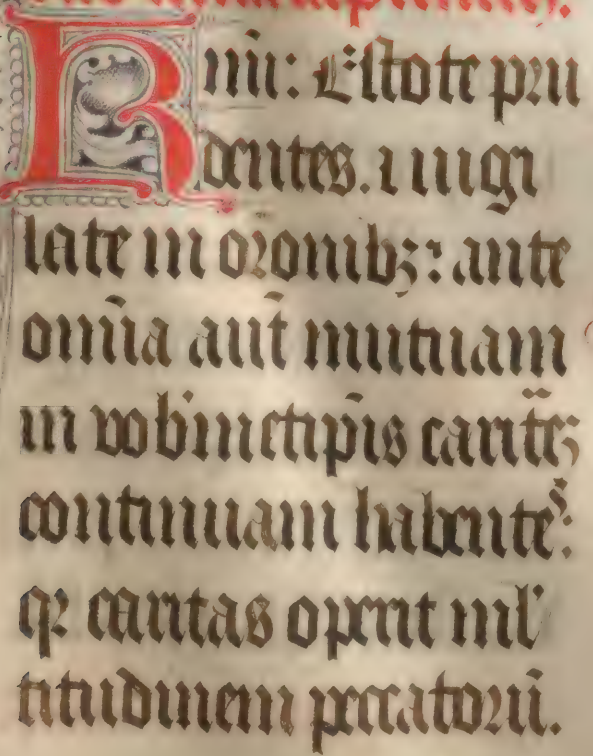 Rmi: Estote pru
dentes. ⁊ uigi
late in or̄onibꝫ: ante
om̄ia aūt mutuam
in vobimetip̄is carit̄eꝫ
continuam habentes:
qꝛ caritas operit ml'
titudinem peccatoꝛū.